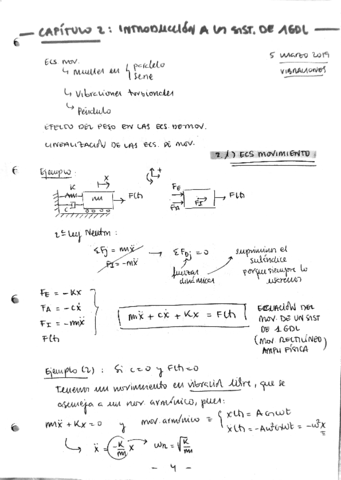 CAPÍTULO 2: INTRODUCCIÓN A UN SIST. DE 1GDL
5 MARZO 2019
VIBRACIONES
ECS MOV.
↳ Muelles en { paralelo
serie
↳ Vibraciones torsionales
↳ Péndulo
EFECTO DEL PESO EN LAS ECS DE MOV.
LINEALIZACIÓN DE LAS ECS. DE MOV.
2.1) ECS MOVIMIENTO:
Ejemplo:
x
K
m
F(t)
c
FE
FA
FI
F(t)
2ª Ley Newton:
ΣFj = mẍ
FI = -mẍ
ΣFDj = 0
fuerzas
dinámicas
suprimimos el
subíndice
porque siempre lo
usaremos
FE = -Kx
FA = -cẋ
FI = -mẍ
F(t)
mẍ + cẋ + Kx = F(t)
ECUACIÓN DEL
MOV. DE UN SIST
DE 1 GDL
(MOV. RECTILÍNEO)
AMPLI FÍSICA)
Ejemplo (2): Si c=0 y F(t)=0
Tenemos un movimiento en vibración libre, que se
asemeja a un mov armónico, pues:
mẍ + Kx = 0 y mov. armónico = { x(t) = A cos ωt
ẍ(t) = -Aω² cos ωt = -ω²x
↳ ẍ = -K/m x ωn = √K/m
- 4 -